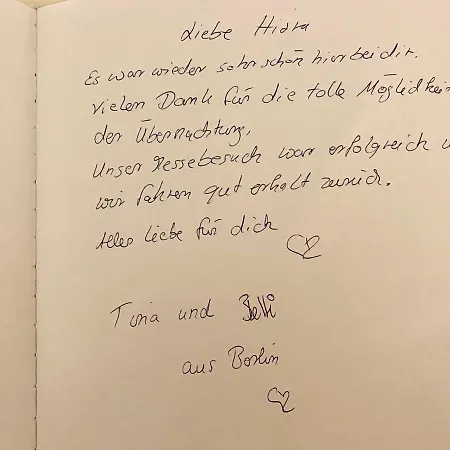 Liebe Hidra
Es war wieder sehr schön hier bei dir.
vielen Dank für die tolle Möglichkei
der Übernachtung.
Unser Messebesuch war erfolgreich u
wir fahren gut erholt zurück.
Alles Liebe für dich
Tina und
aus Berlin